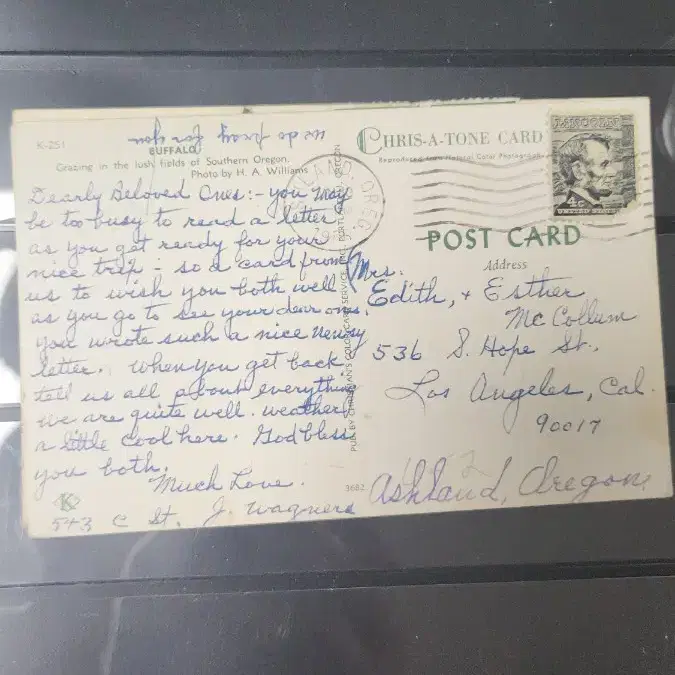 we do pray for you
K-251
BUFFALO
Grazing in the lush fields of Southern Oregon.
Photo by H. A. Williams
Dearly Beloved Ones:- you may
be too busy to read a letter
as you get ready for your
nice trip - so a card from
us to wish you both well
as you go to see your dear ones.
you wrote such a nice newsy
letter. When you get back
tell us all about everything
we are quite well. weather
a little cool here. God bless
you both.
Much Love.
543 C St. J. Wagners
Ashland, Oregon
3682
K
CHRIS-A-TONE CARD
Reproduced from Natural Color Photograph
LINCOLN
4c
UNITED STATES
OREG.
POST CARD
Address
Mrs.
Edith, + Esther
McCollum
536 S. Hope St.,
Los Angeles, Cal.
90017